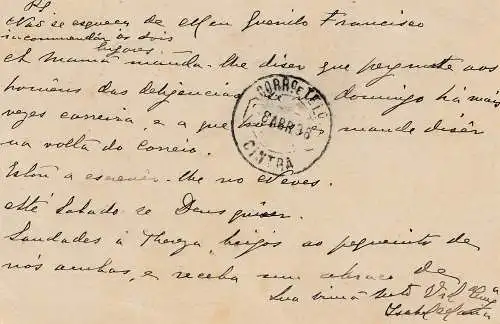 PS
Não se esqueça de Meu Querido Francisco
incommendar os dois
lugares.
A Mamã manda-lhe diser que pergunte aos
homens das deligencias domingo há mais
vezes carreira, e a que mande diser
na volta do correio.
Estou a escrever-lhe no Neves.
Até Sabado se Deus quiser.
Saudades á Thereza, beijos ao pequenito de
nós ambas, e receba um abraço de
Sua irmã mto
Isabel Maria
CORRO E TELGO
8 ABR 36
CINTRA